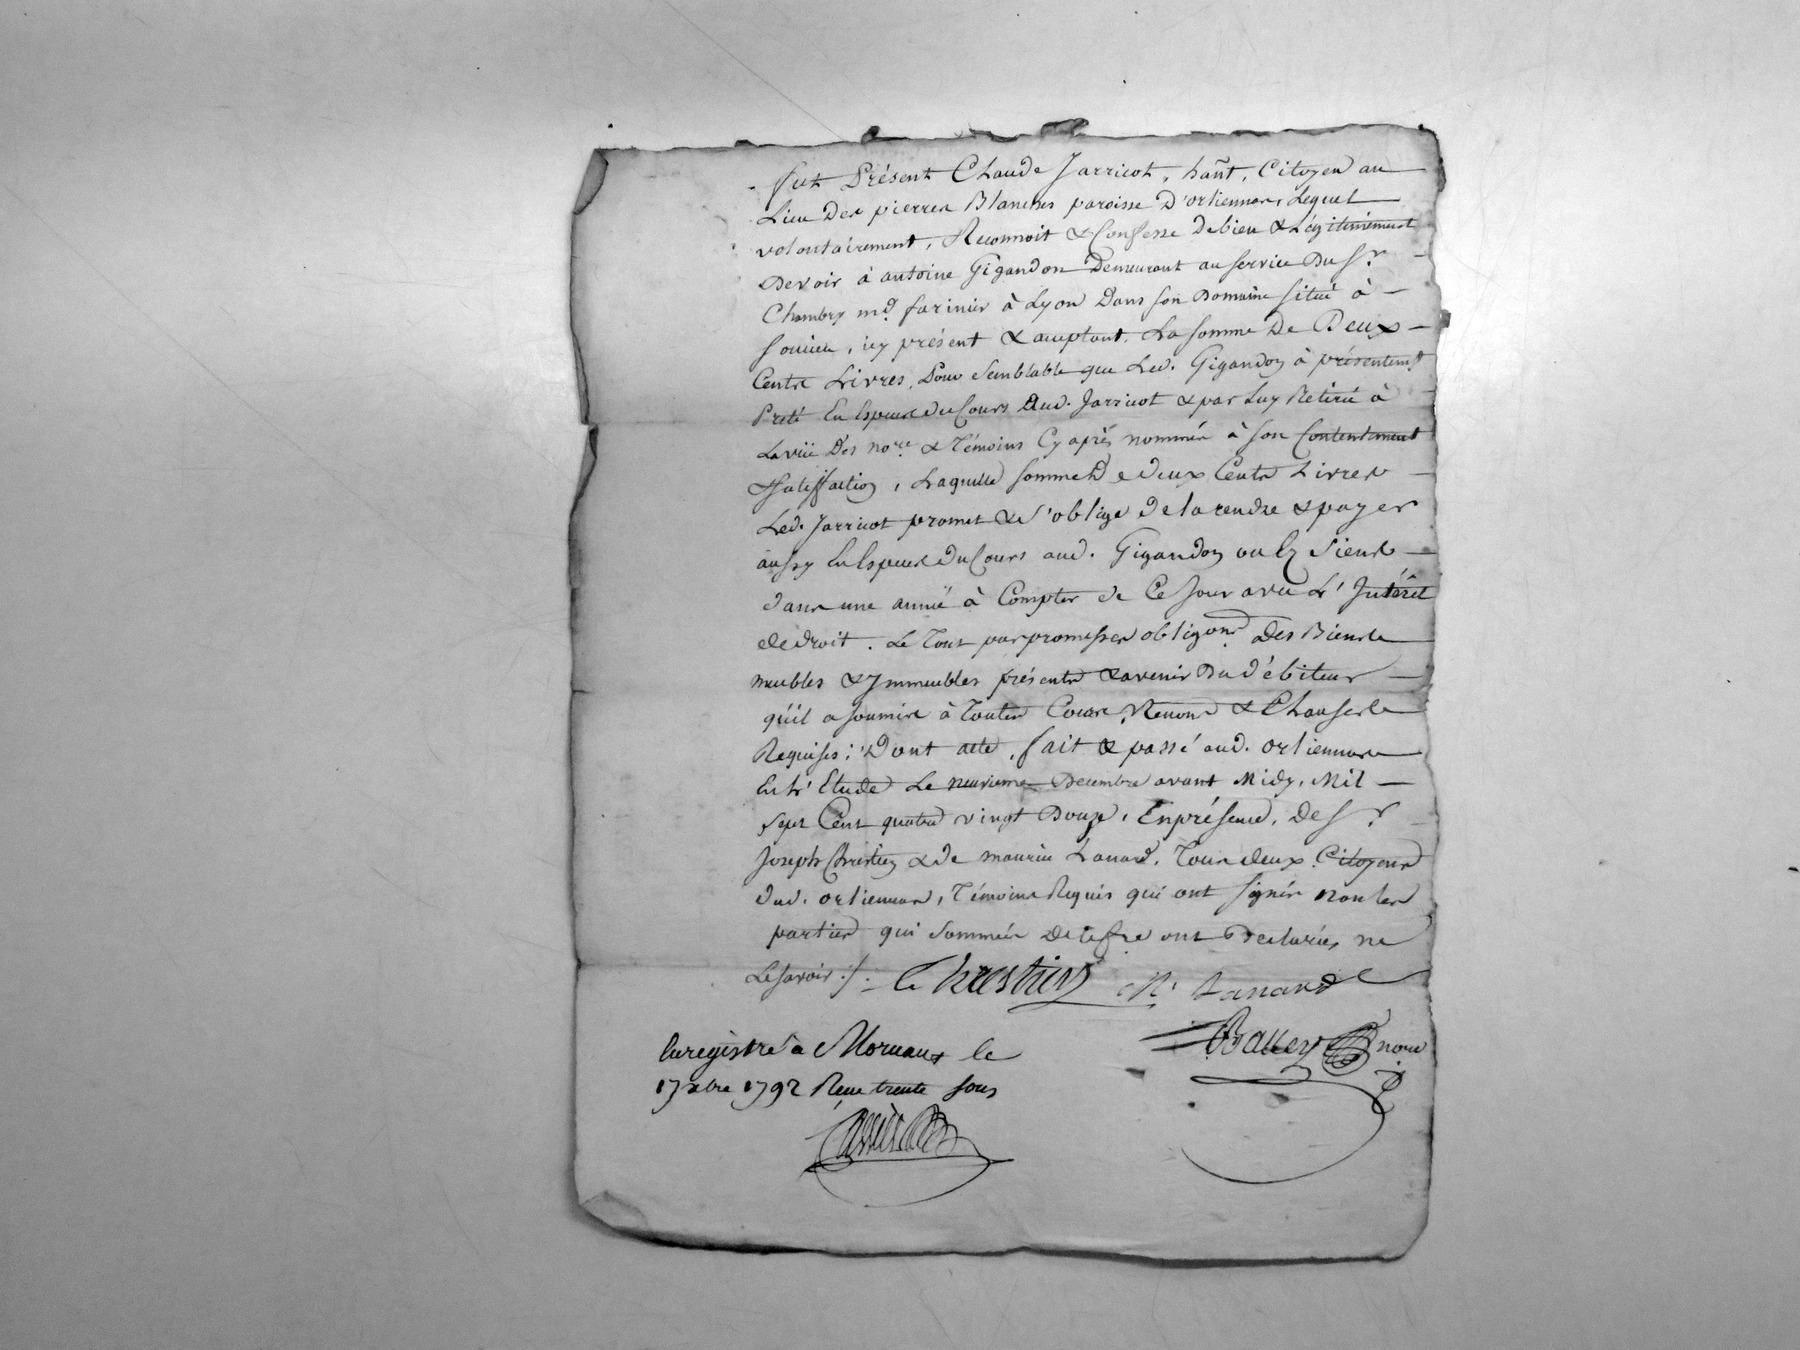 fut Présent Claude Jarricot, hañt, Citoyen au
Lieu des pierres Blanches paroisse D'orliennas, Lequel
volontairement, Reconnoit & Confesse debien & Légitimement
Devoir à antoine Gigandon Demeurant au service Du Sr
Chambry md. farinier à Lyon Dans son Domaine situé à
soucieu, icy présent & acceptant, La somme De Deux
Cents Livres, Pour semblable que Led. Gigandon à présentemt
Preté En Especes du Cours Aud. Jarricot & par Luy Retirée à
La vüe Des nore & Témoins Cy après nommés à son Contentement
& satisfaction, Laquelle somme De deux Cents Livres
Led. Jarricot promet & s'oblige de la rendre & payer
aussy En Especes Du Cours aud. Gigandon ou Es siens
dans une année à Compter de Ce Jour avec L'Intérêt
de droit. Le Tout par promesses obligons Des Biens
meubles & Immeubles présents & avenir Du débiteur
qu'il a soumis à Toutes Cours, Renons & Clauses
Requises; Dont acte, fait & passé aud. orliennas
En L'Etude Le neuvieme Decembre avant Midy, Mil
sept Cent quatre vingt Douze, En présence, De Sr
Joseph Chrestien & de maurice Lanard, Tous deux Citoyens
dud. orliennas, Témoins Requis qui ont signés non les
parties qui sommées De le fre ont Declarées ne
Le savoir ./.
Chrestien M. Lanard
Balley nore
Enregistré a Mornant le
17 xbre 1792 Reçu trente sous